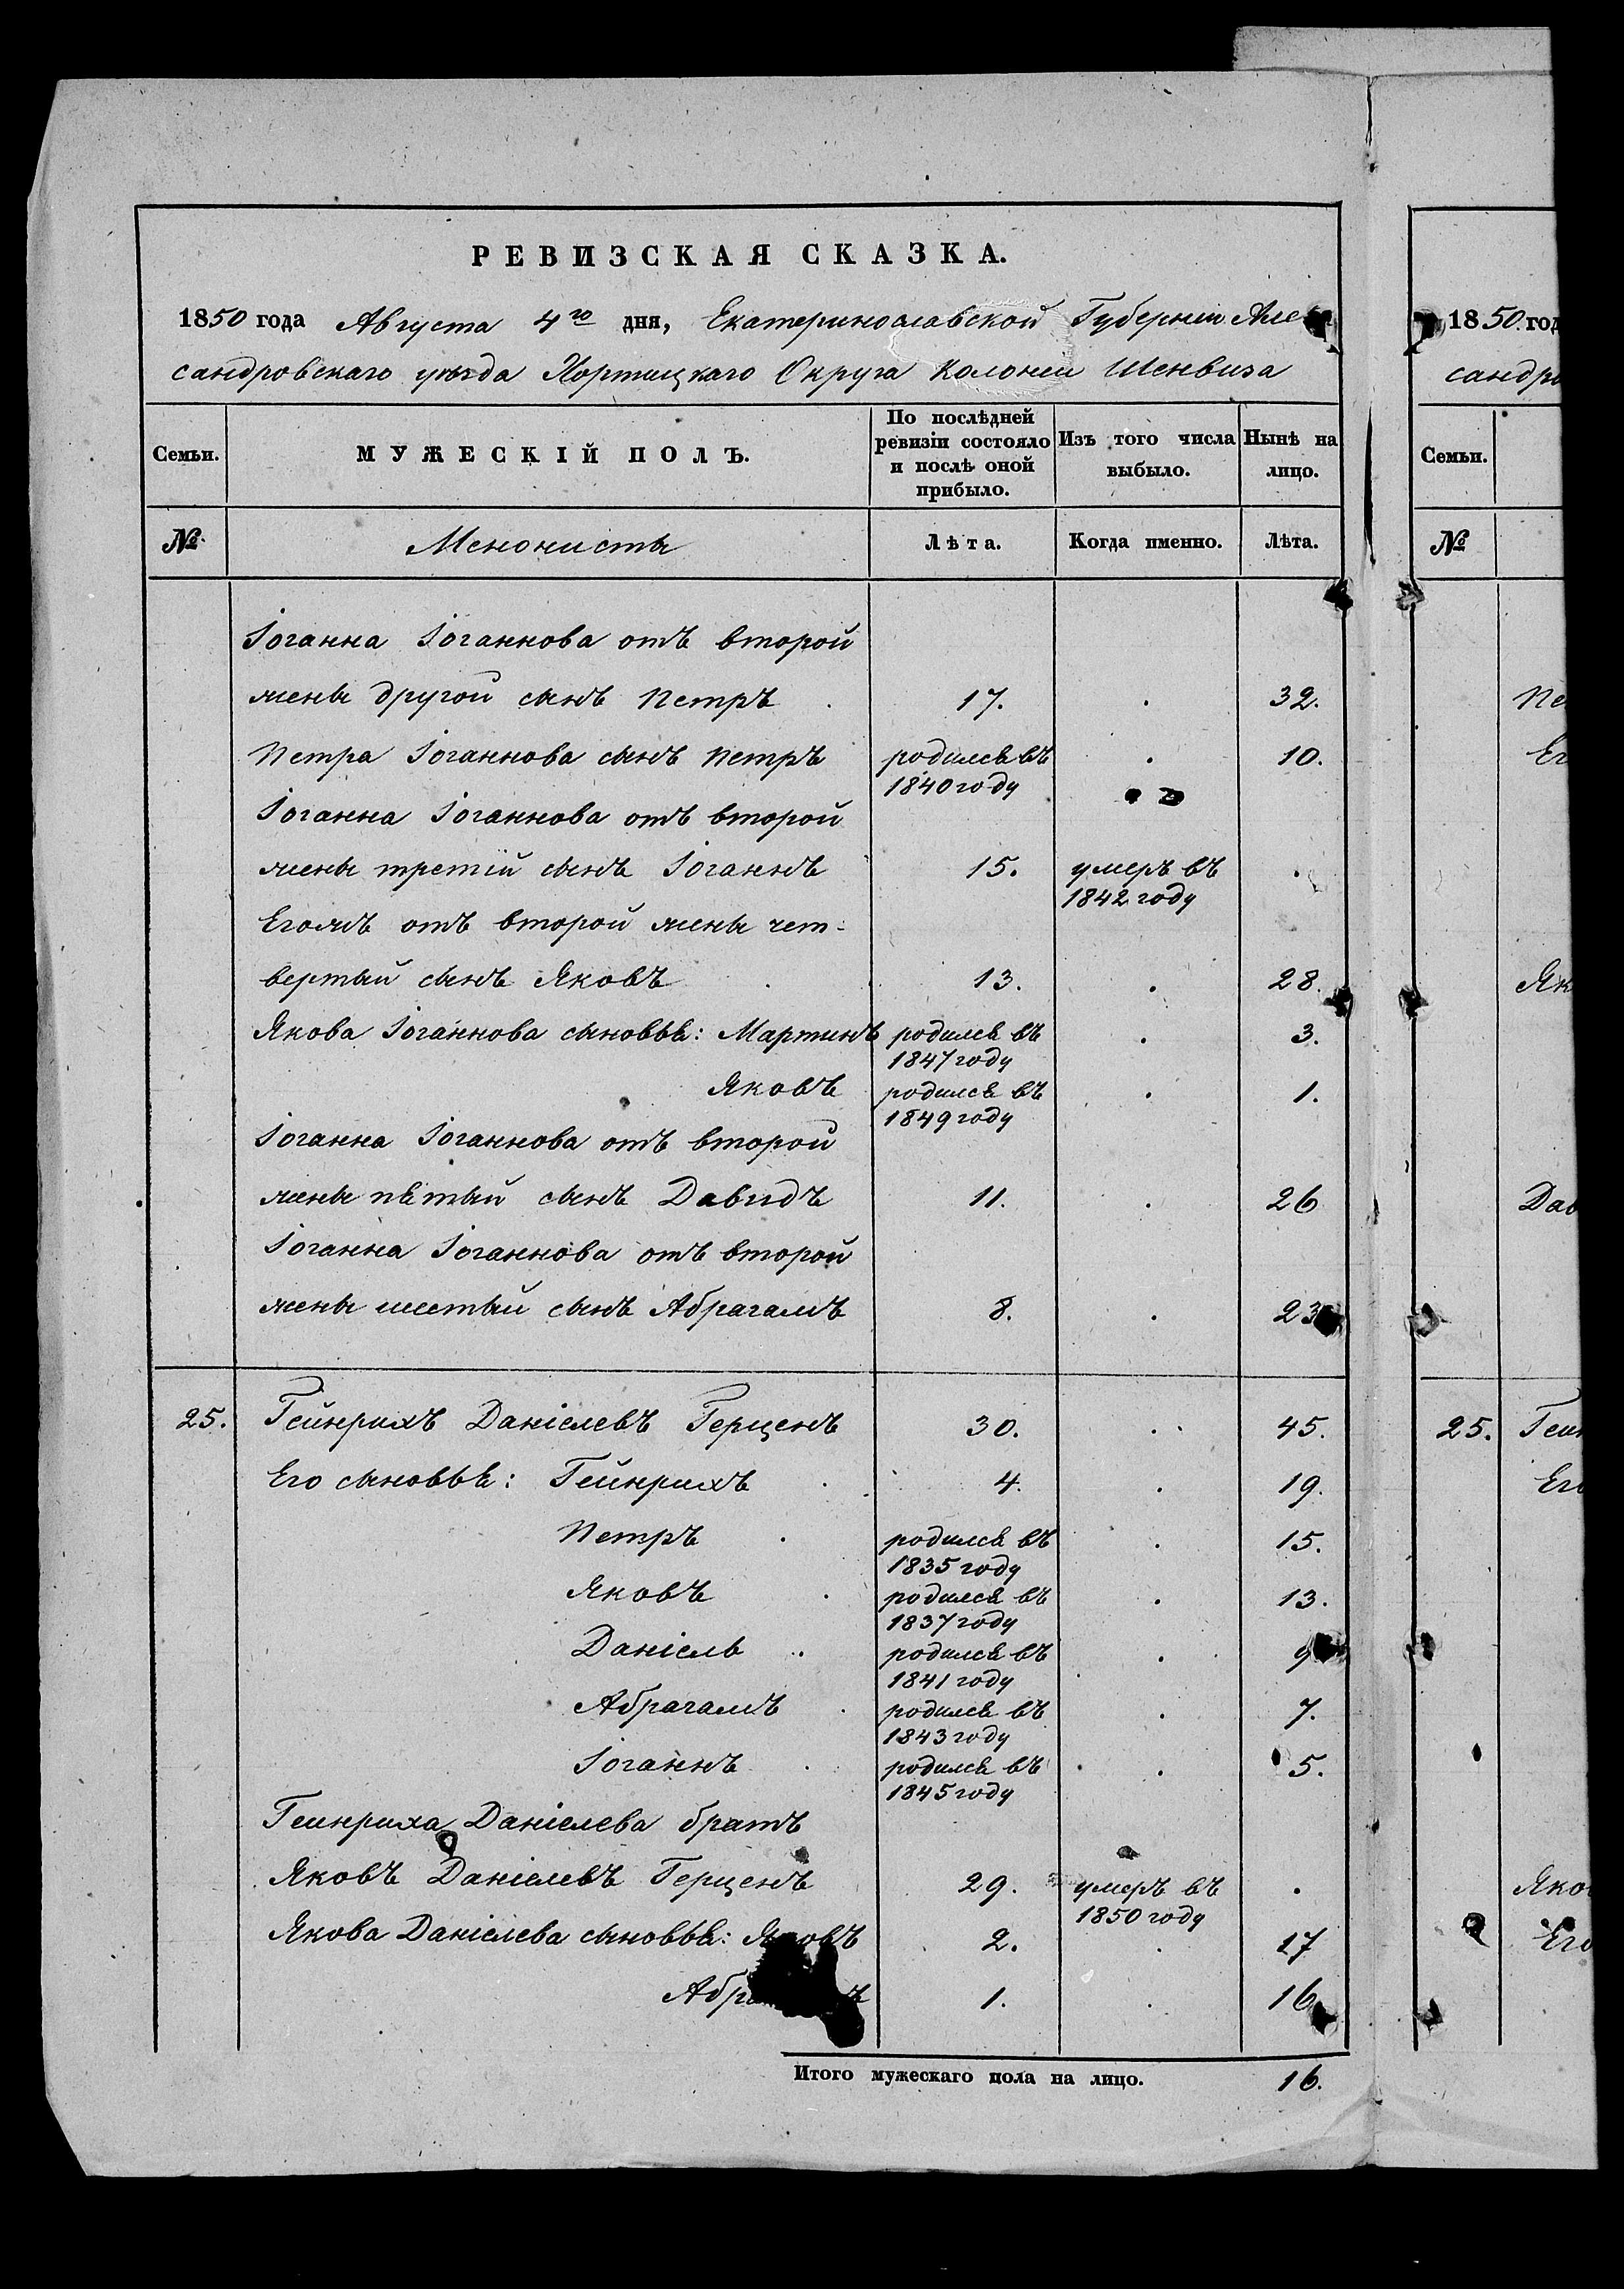 РЕВИЗСКАЯ СКАЗКА.
1850 года Августа 4го дня, Екатеринославской Губернии Але
сандровскаго уѣзда Хортицкаго Округа Колонии Шенвиза
Семьи. МУЖЕСКІЙ ПОЛЪ. По послѣдней ревизіи состояло и послѣ оной прибыло. Изъ того числа выбыло. Нынѣ на лицо.
№ Менонисты Лѣта. Когда именно. Лѣта.
Іоганна Іоганнова отъ второй
жены другой сынъ Петръ 17. 32.
Петра Іоганнова сынъ Петръ родился въ 1840 году 10.
Іоганна Іоганнова отъ второй
жены третій сынъ Іоганнъ 15. умеръ въ 1842 году
Егожъ отъ второй жены чет-
вертый сынъ Яковъ 13. 28.
Якова Іоганнова сыновья: Мартинъ родился въ 1847 году 3.
Яковъ родился въ 1849 году 1.
Іоганна Іоганнова отъ второй
жены пятый сынъ Давидъ 11. 26
Іоганна Іоганнова отъ второй
жены шестый сынъ Абрагамъ 8. 23
25. Гейнрихъ Даніелевъ Герценъ 30. 45.
Его сыновья: Гейнрихъ 4. 19.
Петръ родился въ 1835 году 15.
Яковъ родился въ 1837 году 13.
Даніель родился въ 1841 году 9
Абрагамъ родился въ 1843 году 7.
Іоганнъ родился въ 1845 году 5.
Геинриха Даніелева братъ
Яковъ Даніелевъ Герценъ 29. умеръ въ 1850 году
Якова Даніелева сыновья: Яковъ 2. 17
1. 16
Итого мужескаго пола на лицо. 16.
1850 год
сандро
Семьи.
№
Пе
Ег
Як
Дав
25. Геин
Его
Яков
Его